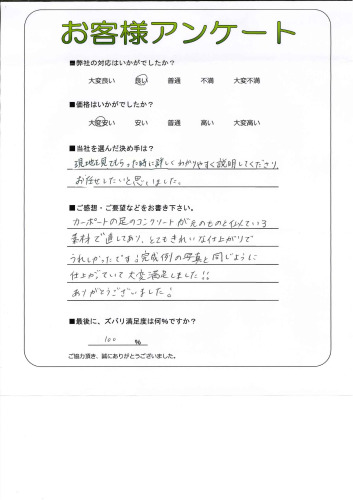 お客様アンケート
■弊社の対応はいかがでしたか？
大変良い 良い 普通 不満 大変不満
■価格はいかがでしたか？
大変安い 安い 普通 高い 大変高い
■当社を選んだ決め手は？
現地を見てもらった時に詳しくわかりやすく説明してくださり
お任せしたいと思いました。
■ご感想・ご要望などをお書き下さい。
カーポートの足のコンクリートが元のものと似ている
素材で直してあり、とてもきれいな仕上がりで
うれしかったです！完成例の写真と同じように
仕上がていて大変満足しました!!
ありがとうございました！
■最後に、ズバリ満足度は何%ですか？
100 %
ご協力頂き、誠にありがとうございました。